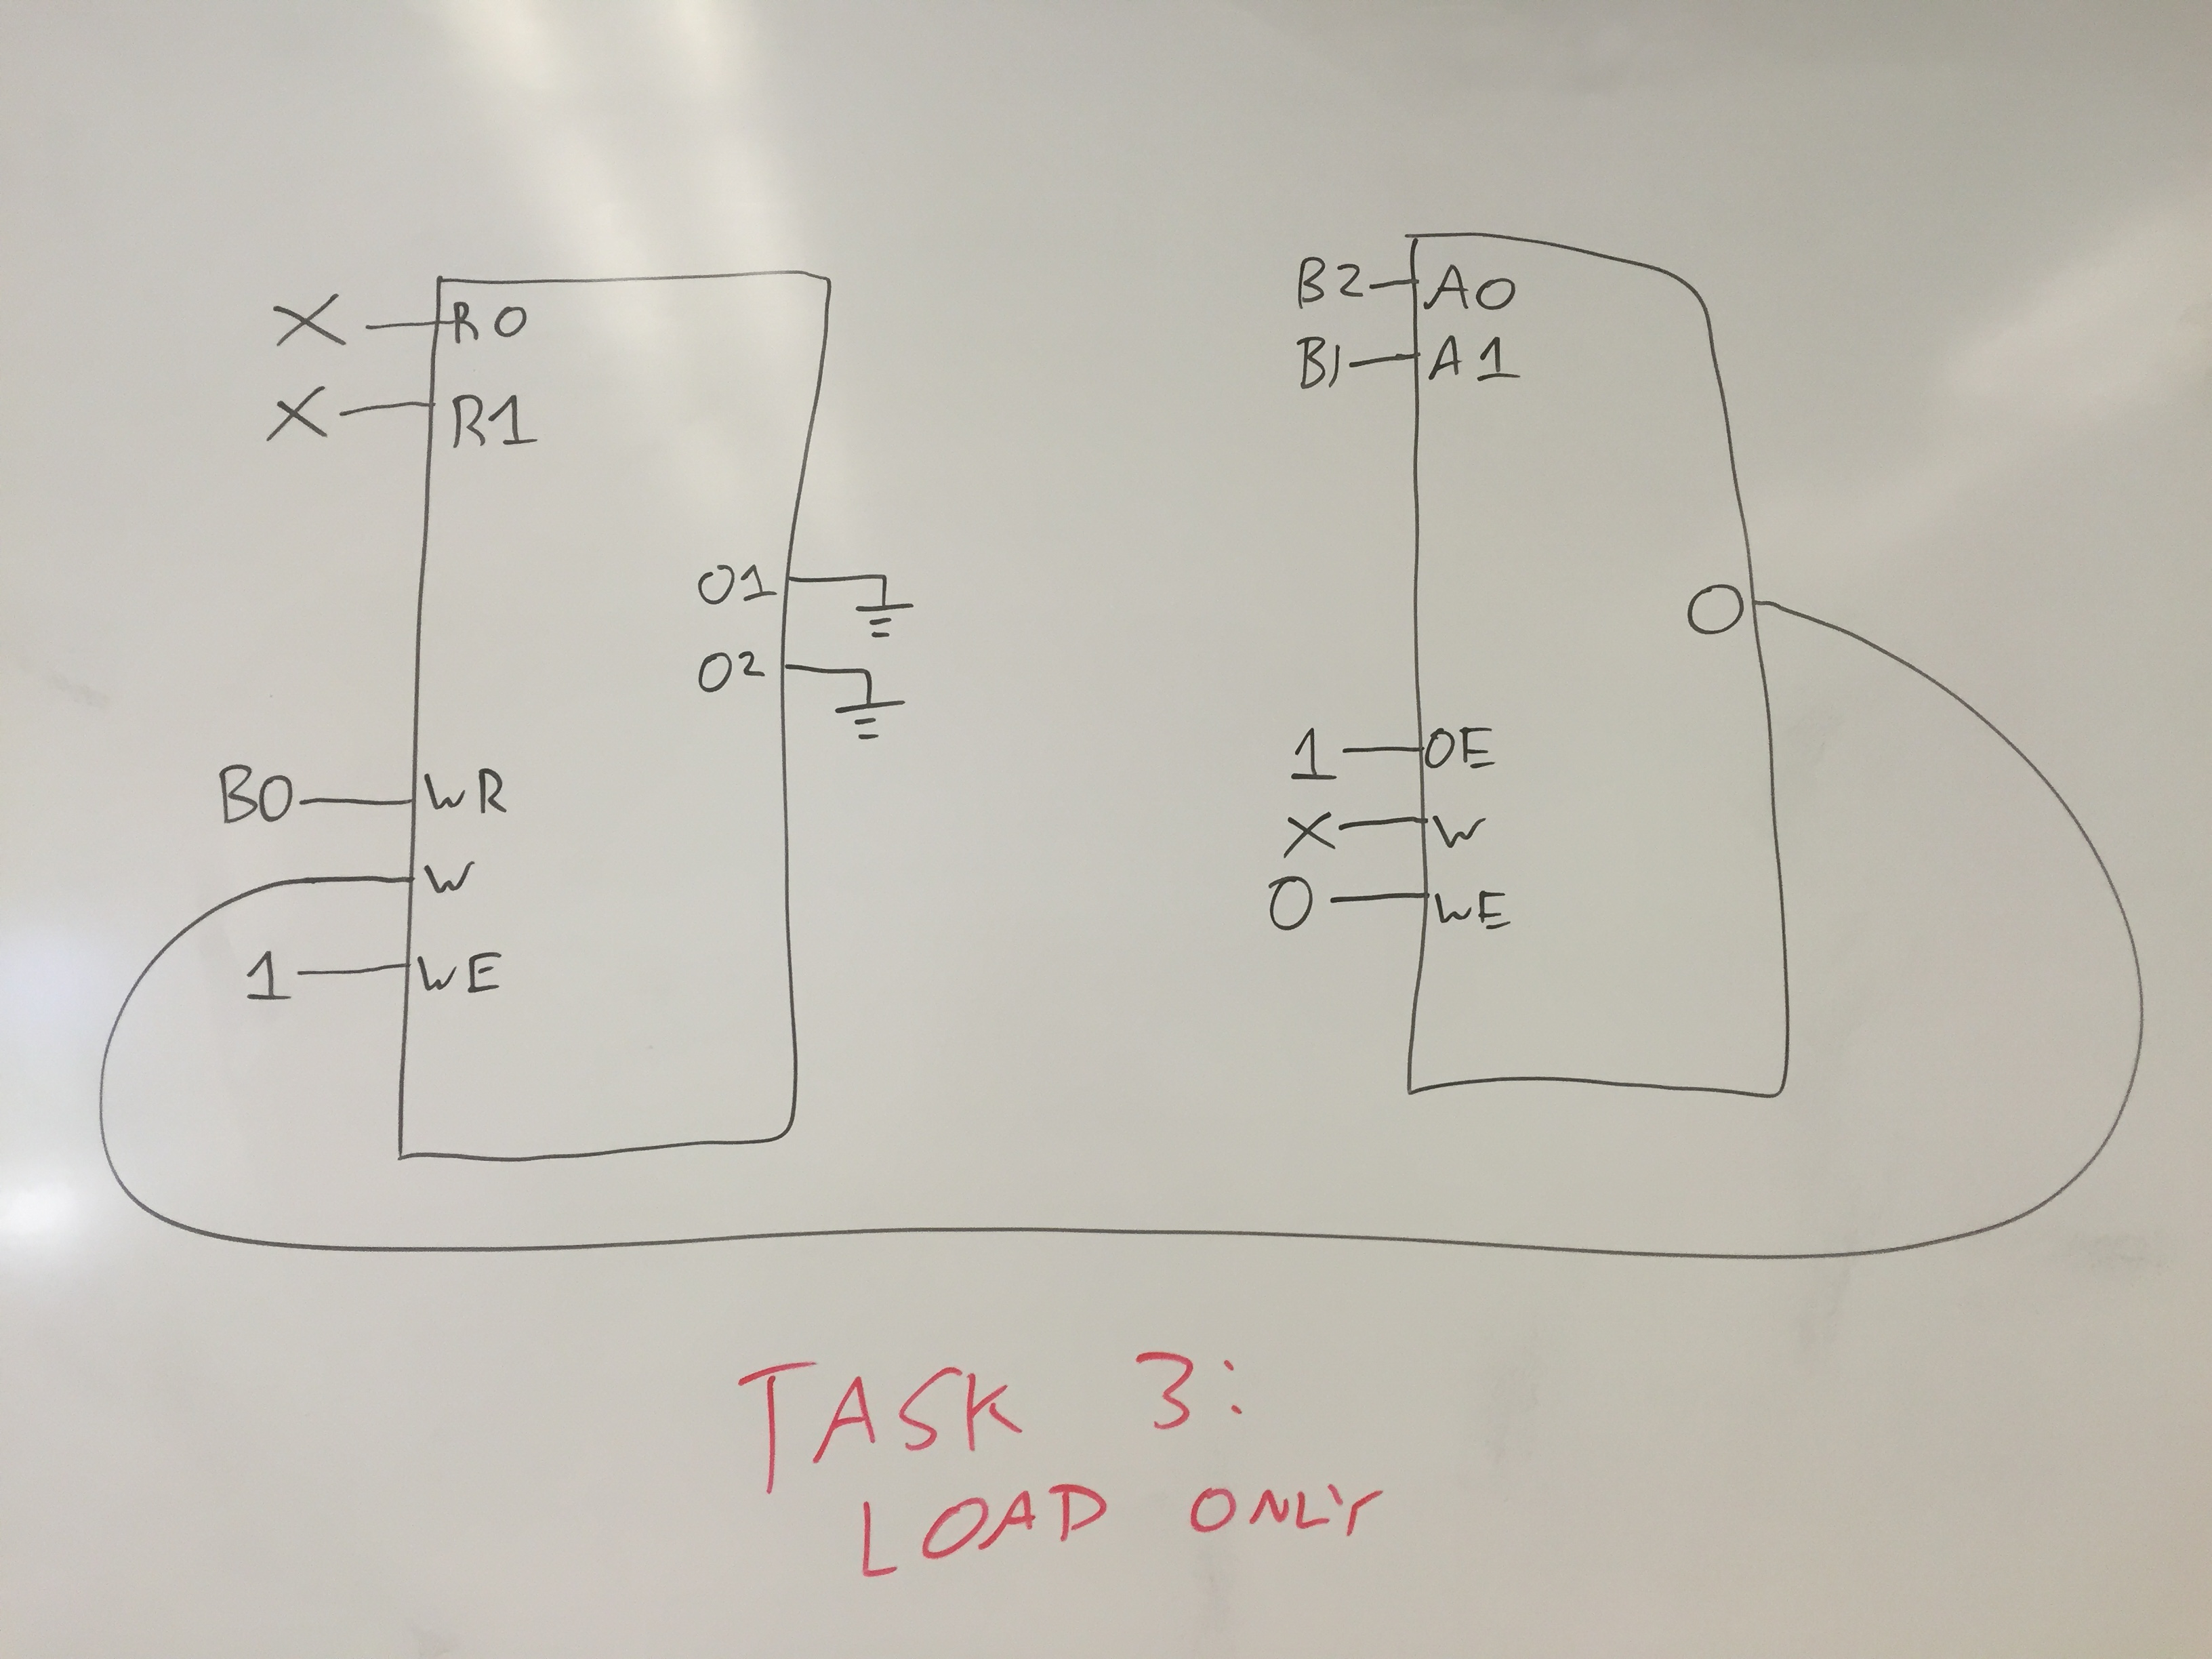 X R0
X R1
O1
O2
B0 WR
W
1 WE
B2 A0
B1 A1
O
1 OE
X W
0 WE
TASK 3:
LOAD ONLY